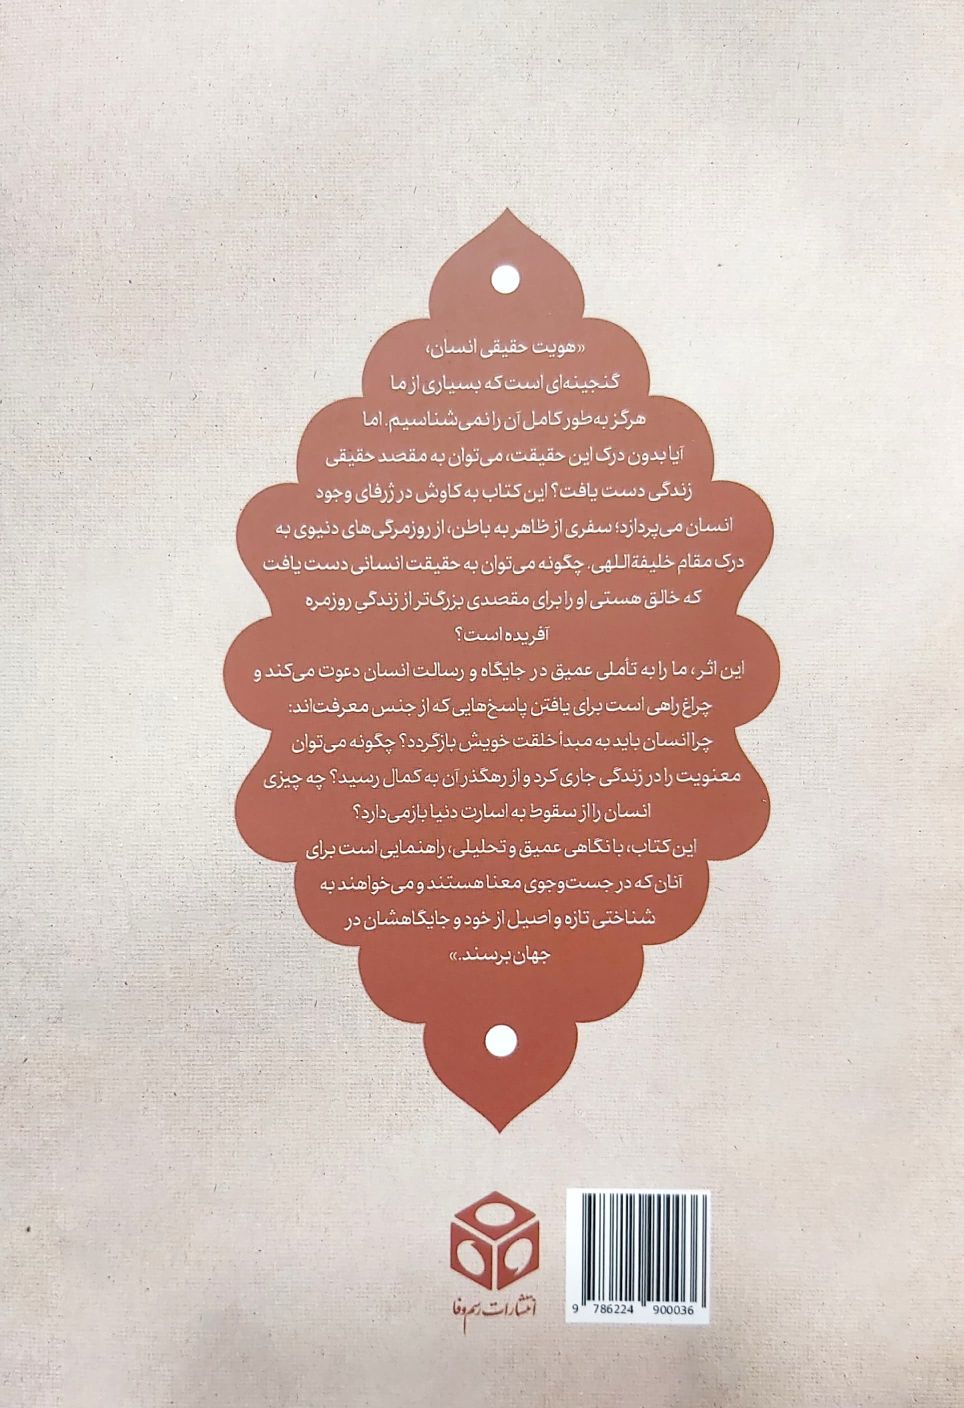 «هویت حقیقی انسان،
گنجینه‌ای است که بسیاری از ما
هرگز به‌طور کامل آن را نمی‌شناسیم. اما
آیا بدون درک این حقیقت، می‌توان به مقصد حقیقی
زندگی دست یافت؟ این کتاب به کاوش در ژرفای وجود
انسان می‌پردازد؛ سفری از ظاهر به باطن، از روزمرگی‌های دنیوی به
درک مقام خلیفةاللهی. چگونه می‌توان به حقیقت انسانی دست یافت
که خالق هستی او را برای مقصدی بزرگ‌تر از زندگیِ روزمره
آفریده است؟
این اثر، ما را به تأملی عمیق در جایگاه و رسالت انسان دعوت می‌کند و
چراغ راهی است برای یافتن پاسخ‌هایی که از جنس معرفت‌اند:
چرا انسان باید به مبدأ خلقت خویش بازگردد؟ چگونه می‌توان
معنویت را در زندگی جاری کرد و از رهگذر آن به کمال رسید؟ چه چیزی
انسان را از سقوط به اسارت دنیا بازمی‌دارد؟
این کتاب، با نگاهی عمیق و تحلیلی، راهنمایی است برای
آنان که در جست‌وجوی معنا هستند و می‌خواهند به
شناختی تازه و اصیل از خود و جایگاهشان در
جهان برسند.»
انتشارات رسم وفا
9 786224 900036